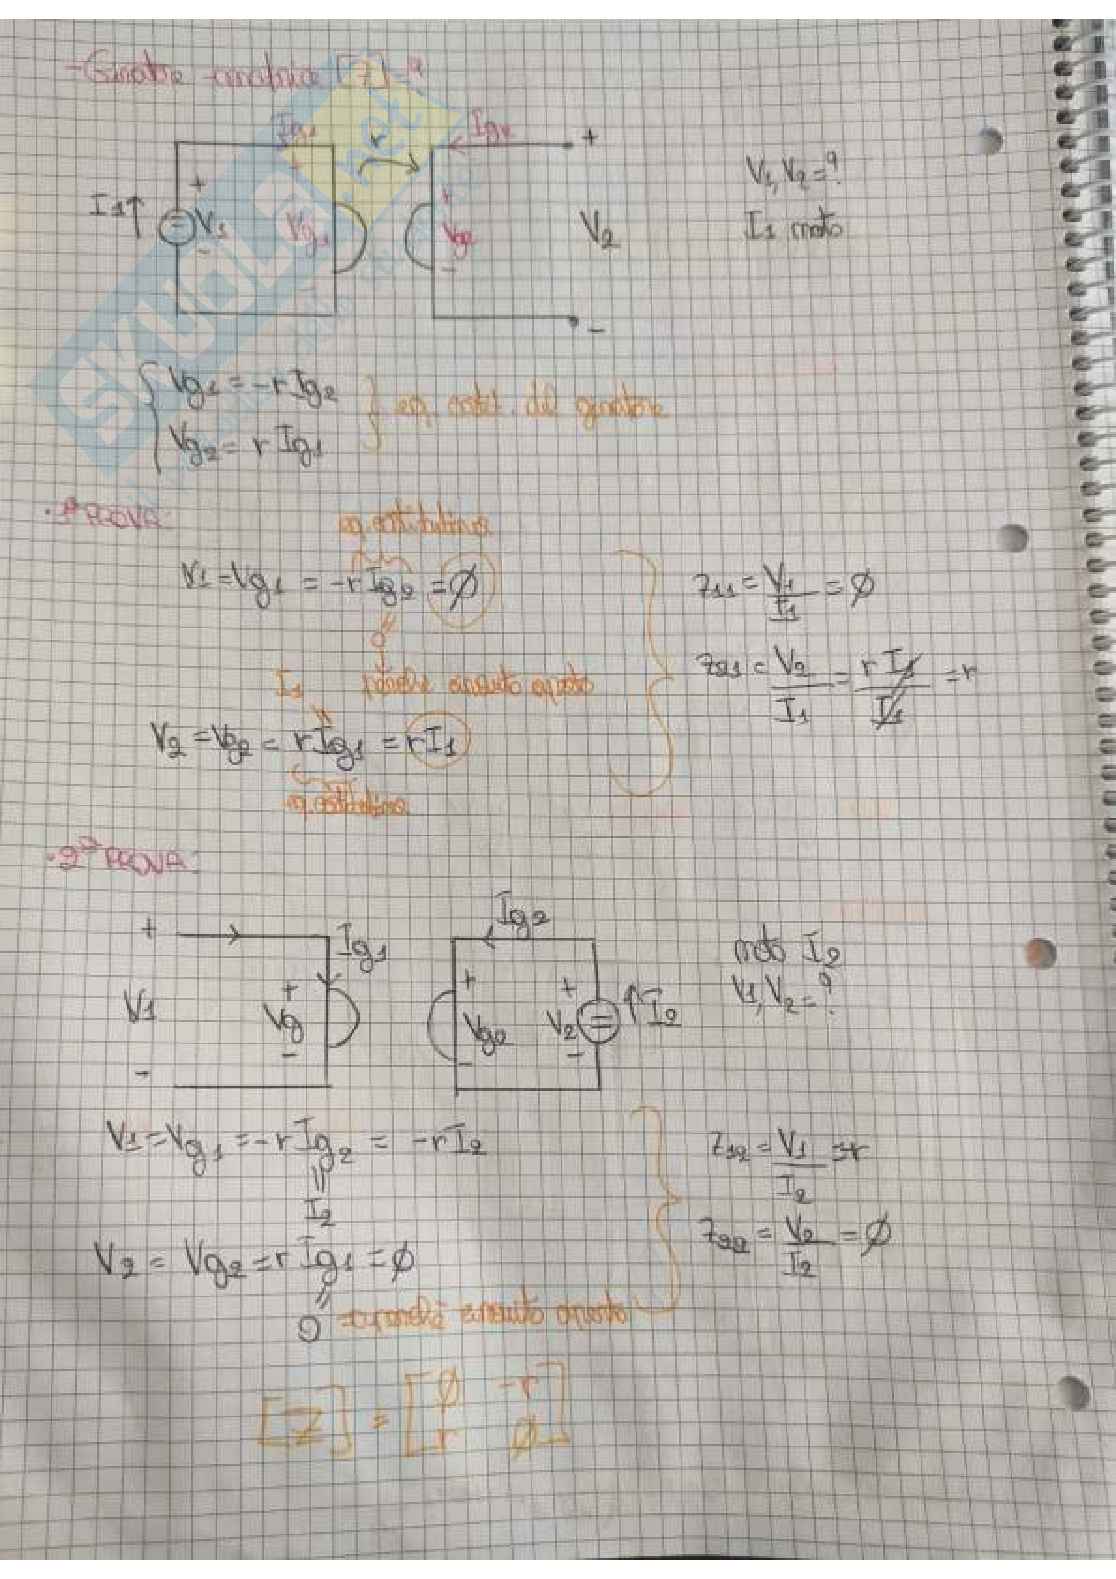 - Giratore matrice [Z]
Ig1 r Ig2 +
I1↑ + V1 - + Vg1 + Vg2 - V2
-
V1, V2 = ?
I1 noto
SKUOLA.net
{ Vg1 = -r Ig2
Vg2 = r Ig1 } eq. cost. del giratore
· 1ª PROVA:
eq. costitutiva
V1 = Vg1 = -r Ig2 = ∅
0
perché circuito aperto
I1
V2 = Vg2 = r Ig1 = r I1
eq. costitutiva
z11 = V1/I1 = ∅
z21 = V2/I1 = r I1/I1 = r
· 2ª PROVA:
+ Ig1 Ig2
V1 + Vg - + Vg2 - + V2 - ↑I2
-
noto I2
V1, V2 = ?
V1 = Vg1 = -r Ig2 = -r I2
I2
V2 = Vg2 = r Ig1 = ∅
0 → perché circuito aperto
z12 = V1/I2 = -r
z22 = V2/I2 = ∅
[Z] = [∅ -r
r ∅]